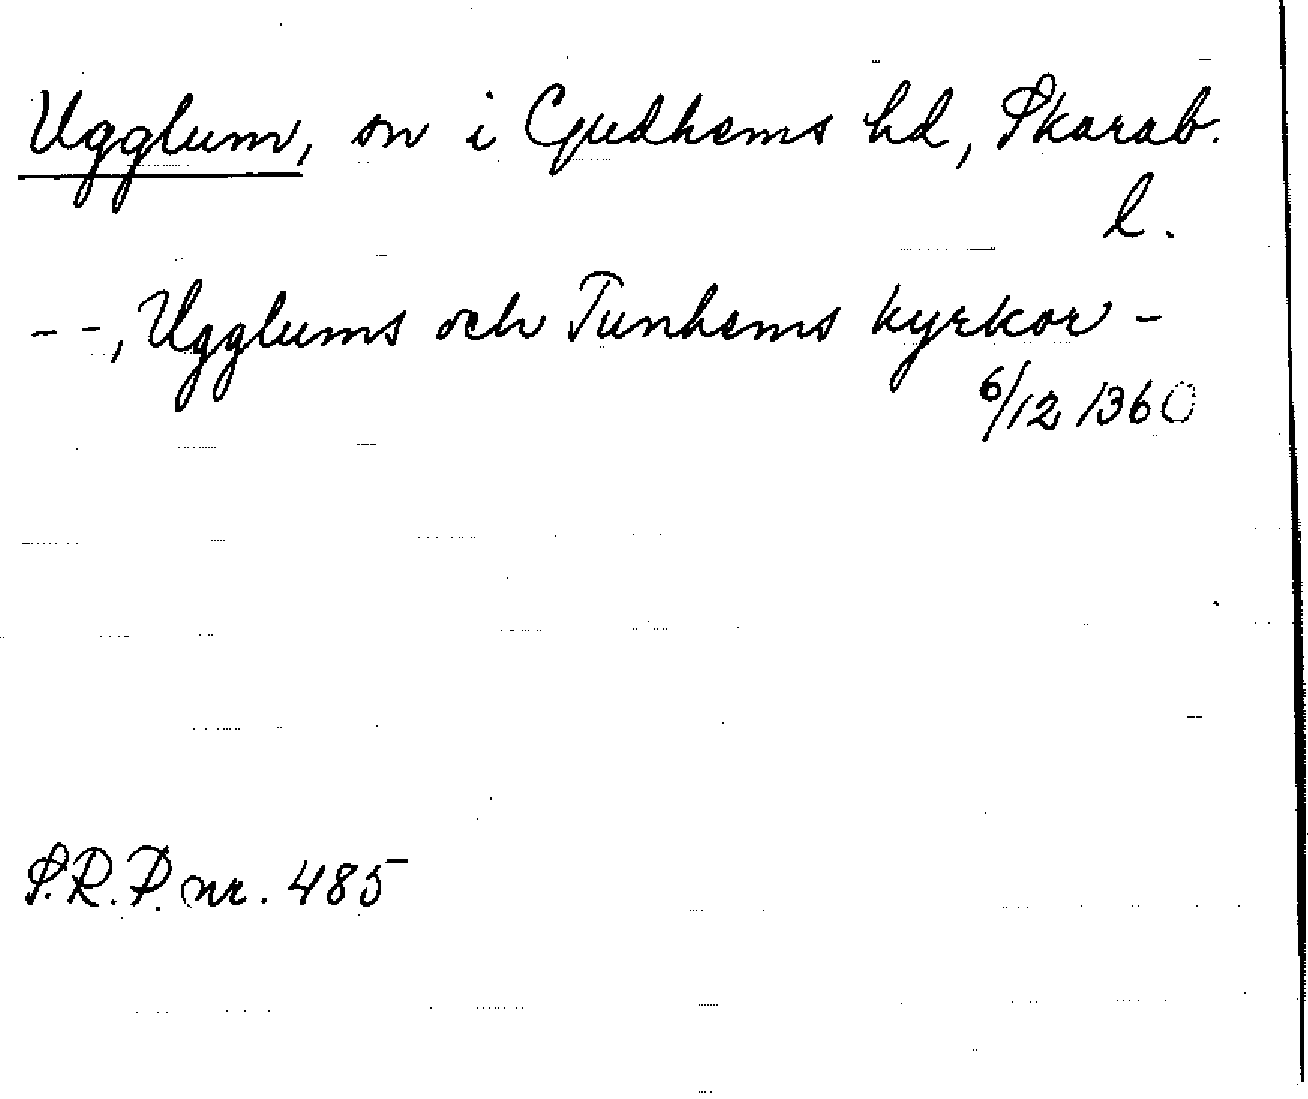 Ugglum, sn i Gudhems hd, Skarab.
l.
- -, Ugglums och Tunhems kyrkor -
6/12 1360
S.R.P. nr. 485